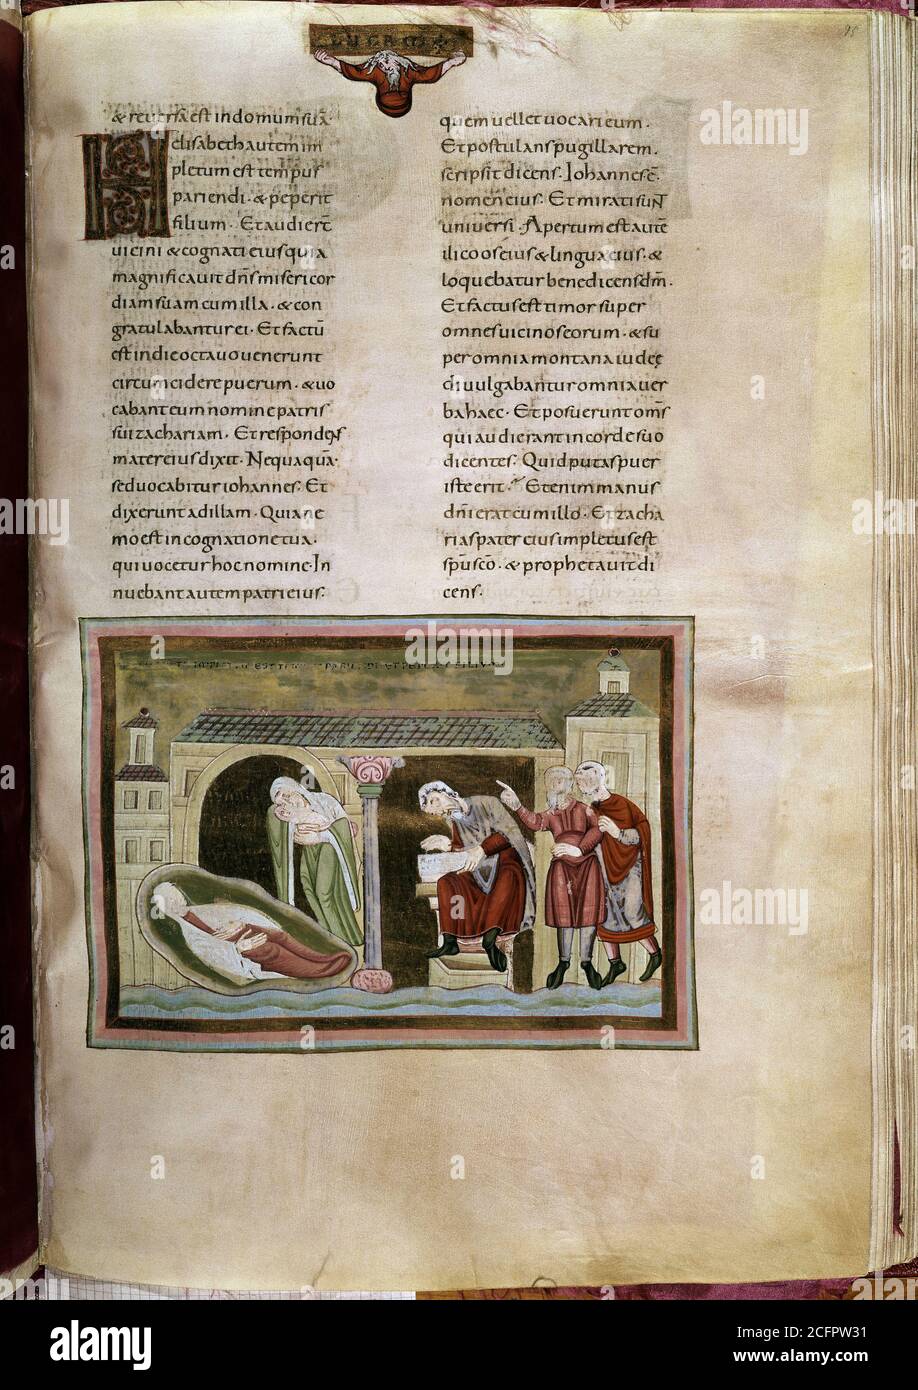 LUCAM
& reversa est in domum sua.
H elisabeth autem im
pletum est tempus
pariendi. & peperit
filium. Et audiert
vicini & cognati eius quia
magnificavit dns misericor
diam suam cum illa. & con
gratulabantur ei. Et factū
est in die octavo venerunt
circumcidere puerum. & vo
cabant eum nomine patris
sui zachariam. Et respondens
mater eius dixit. Nequaquā.
sed vocabitur iohannes. Et
dixerunt ad illam. Quia ne
mo est in cognatione tua.
qui vocetur hoc nomine. In
nuebant autem patri eius.
quem vellet vocari eum.
Et postulans pugillarem.
scripsit dicens. Iohannes ē.
nomen eius. Et mirati sunt
universi. Apertum est autē
ilico os eius & lingua eius. &
loquebatur benedicens dm.
Et factus est timor super
omnes vicinos eorum. & su
per omnia montana iudeę
divulgabantur omnia ver
ba haec. Et posuerunt oms
qui audierant in corde suo
dicentes. Quid putas puer
iste erit. Etenim manus
dni erat cum illo. Et zacha
rias pater eius impletus est
spu sco. & prophetavit di
cens.
alamy
Image ID: 2CFPW31
www.alamy.com